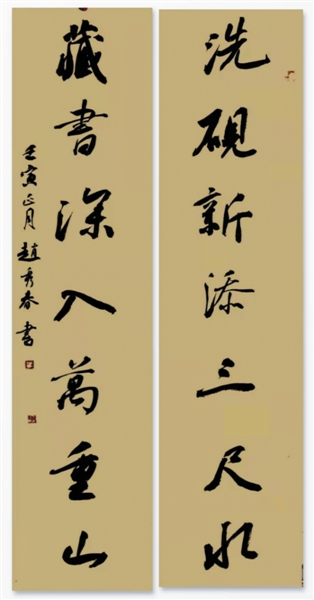 洗硯新添三尺水
藏書深入萬重山
壬寅正月趙秀春書